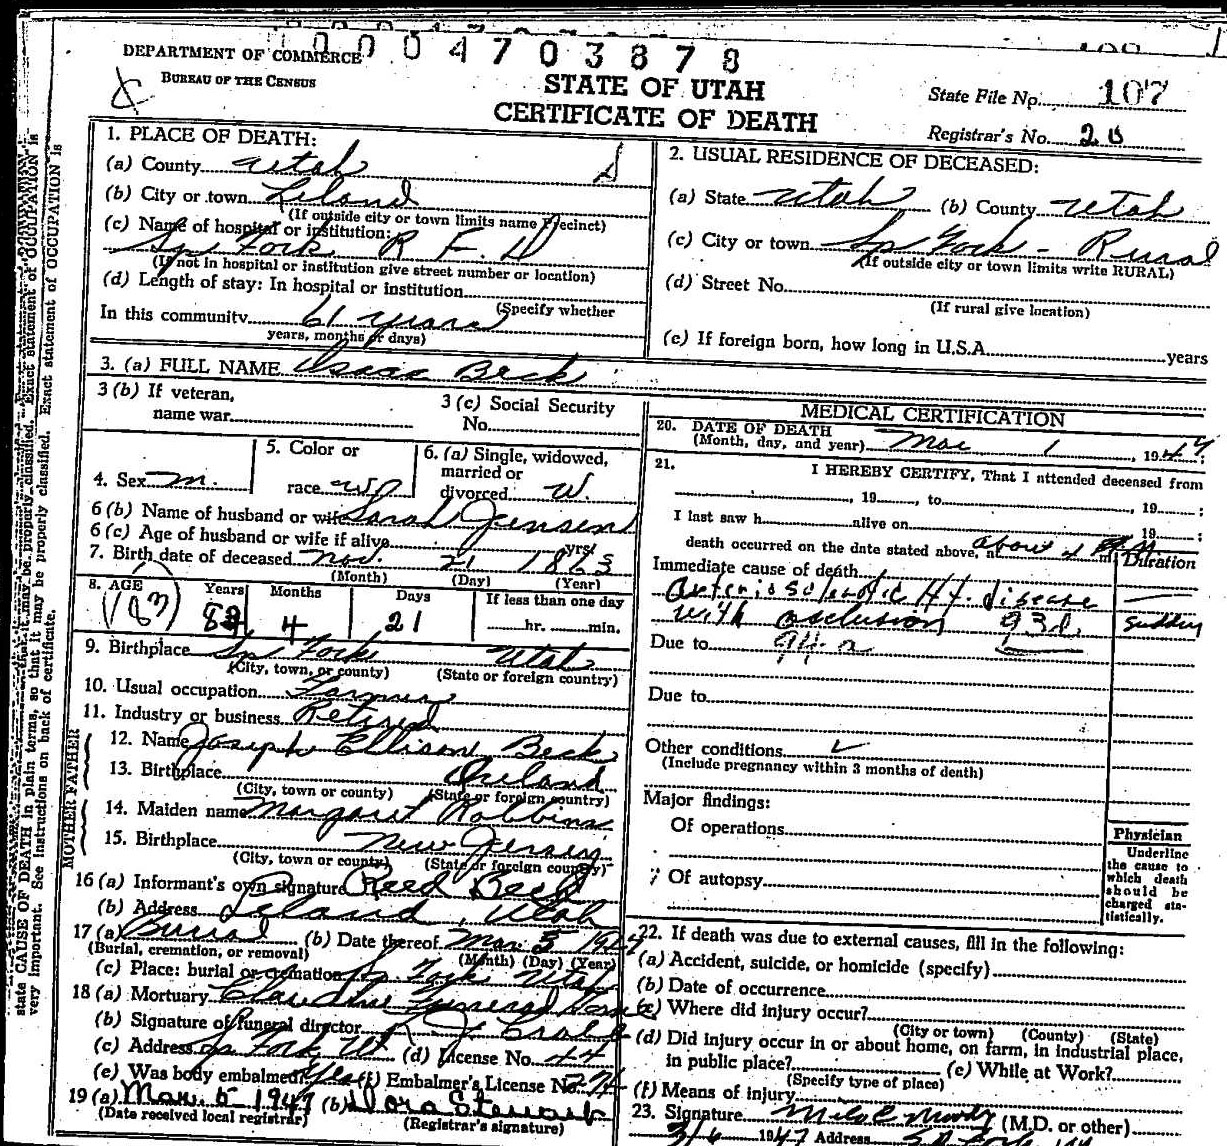 10004703878
DEPARTMENT OF COMMERCE
BUREAU OF THE CENSUS
STATE OF UTAH
CERTIFICATE OF DEATH
State File No. 107
Registrar's No. 20
1. PLACE OF DEATH:
(a) County Utah
(b) City or town Leland
(If outside city or town limits name Precinct)
(c) Name of hospital or institution:
Sp Fork R F. D
(If not in hospital or institution give street number or location)
(d) Length of stay: In hospital or institution
(Specify whether
In this community 61 years
years, months or days)
2. USUAL RESIDENCE OF DECEASED:
(a) State Utah (b) County Utah
(c) City or town Sp Fork - Rural
(If outside city or town limits write RURAL)
(d) Street No.
(If rural give location)
(e) If foreign born, how long in U.S.A. years
3. (a) FULL NAME Isaac Beck
3 (b) If veteran,
name war
3 (c) Social Security
No.
4. Sex m.
5. Color or
race
6. (a) Single, widowed,
married or
divorced W.
6 (b) Name of husband or wife Sarah Jensen
6 (c) Age of husband or wife if alive yrs.
7. Birth date of deceased Nov. 21 1863
(Month) (Day) (Year)
8. AGE Years Months Days If less than one day
(83) 4 21 hr. min.
9. Birthplace Sp Fork Utah
(City, town, or county) (State or foreign country)
10. Usual occupation Farmer
11. Industry or business Retired
FATHER
12. Name Joseph Ellison Beck
13. Birthplace Ireland
(City, town or county) (State or foreign country)
MOTHER
14. Maiden name Margaret Robbins
15. Birthplace New Jersey
(City, town or county) (State or foreign country)
16 (a) Informant's own signature Reed Beck
(b) Address Leland, Utah
17 (a) Burial (b) Date thereof Mar. 5 1947
(Burial, cremation, or removal) (Month) (Day) (Year)
(c) Place: burial or cremation Sp. Fork Utah
18 (a) Mortuary Claudin Funeral Home
(b) Signature of funeral director
(c) Address Sp Fork, Ut (d) License No. 44
(e) Was body embalmed? Yes (f) Embalmer's License No. 274
19 (a) Mar. 5 1947 (b) Dora Stewart
(Date received local registrar) (Registrar's signature)
MEDICAL CERTIFICATION
20. DATE OF DEATH
(Month, day, and year) Mar 1, 1947;
21. I HEREBY CERTIFY, That I attended deceased from
, 19 , to , 19 ;
I last saw h alive on 19 ;
death occurred on the date stated above, a above at M
Duration
Immediate cause of death
Arteriosclerotic Ht. disease
with occlusion 93d. sudden
Due to 94-a
Due to
Other conditions
(Include pregnancy within 3 months of death)
Major findings:
Of operations
Of autopsy
Physician
Underline
the cause to
which death
should be
charged sta-
tistically.
22. If death was due to external causes, fill in the following:
(a) Accident, suicide, or homicide (specify)
(b) Date of occurrence
(c) Where did injury occur?
(City or town) (County) (State)
(d) Did injury occur in or about home, on farm, in industrial place,
in public place? (e) While at Work?
(Specify type of place)
(f) Means of injury
23. Signature Milo C Moody (M.D. or other)
3/6 1947 Address Sp Fork Ut
state CAUSE OF DEATH in plain terms, so that it may be properly classified. Exact statement of OCCUPATION is
very important. See instructions on back of certificate.